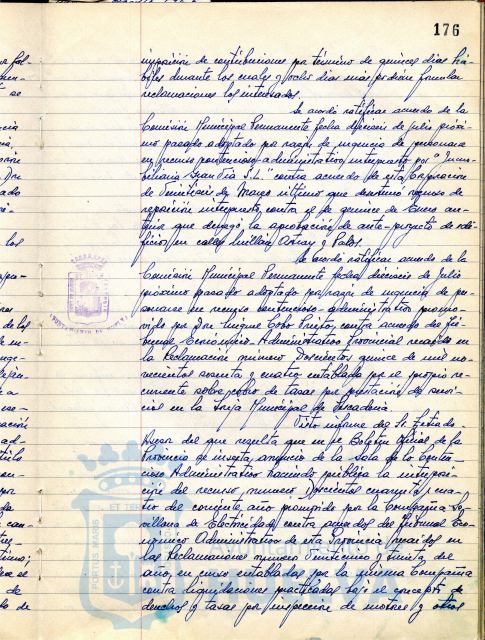 176
imposición de contribuciones por término de quince días há-
biles durante los cuales y ocho días más podrán formular
reclamaciones los interesados.
Se acordó ratificar acuerdo de la
Comisión Municipal Permanente fecha dieciseis de julio próxi-
mo pasado adoptado por razón de urgencia de personarse
en recurso contencioso-administrativo interpuesto por "Inmo-
biliaria Gran Vía S.L." contra acuerdo de esta Corporación
de veintiseis de Marzo último que desestimó recurso de
reposición interpuesto contra el de quince de Enero an-
terior que denegó la aprobación de ante-proyecto de edi-
ficio en calles Millán Astray y Palos.
Se acordó ratificar acuerdo de la
Comisión Municipal Permanente fecha dieciseis de julio
próximo pasado adoptado por razón de urgencia de per-
sonarse en recurso contencioso-administrativo promo-
vido por Don Miguel Cobo Prieto, contra acuerdo del Tri-
bunal Económico-Administrativo Provincial recaido en
la Reclamación número Doscientos quince de mil no-
vecientos sesenta y cuatro entablada por el propio re-
currente sobre cobro de tasas por prestación de servi-
cios en la Lonja Municipal de Pescadería.
Visto informe del Sr. Letrado-
Asesor del que resulta que en el Boletín Oficial de la
Provincia se inserta anuncio de la Sala de lo Conten-
cioso Administrativo haciendo pública la interposi-
ción del recurso número Doscientos cuarenta y cua-
tro del corriente año promovido por la Compañía Se-
villana de Electricidad contra acuerdos del Tribunal Eco-
nómico Administrativo de esta Provincia, recaidos en
las Reclamaciones número Veinticinco y treinta del
año en curso entabladas por la misma Compañía
contra liquidaciones practicadas bajo el concepto de
derechos y tasas por inspección de motores y otros
PORTUS MARIS ET TERRAE